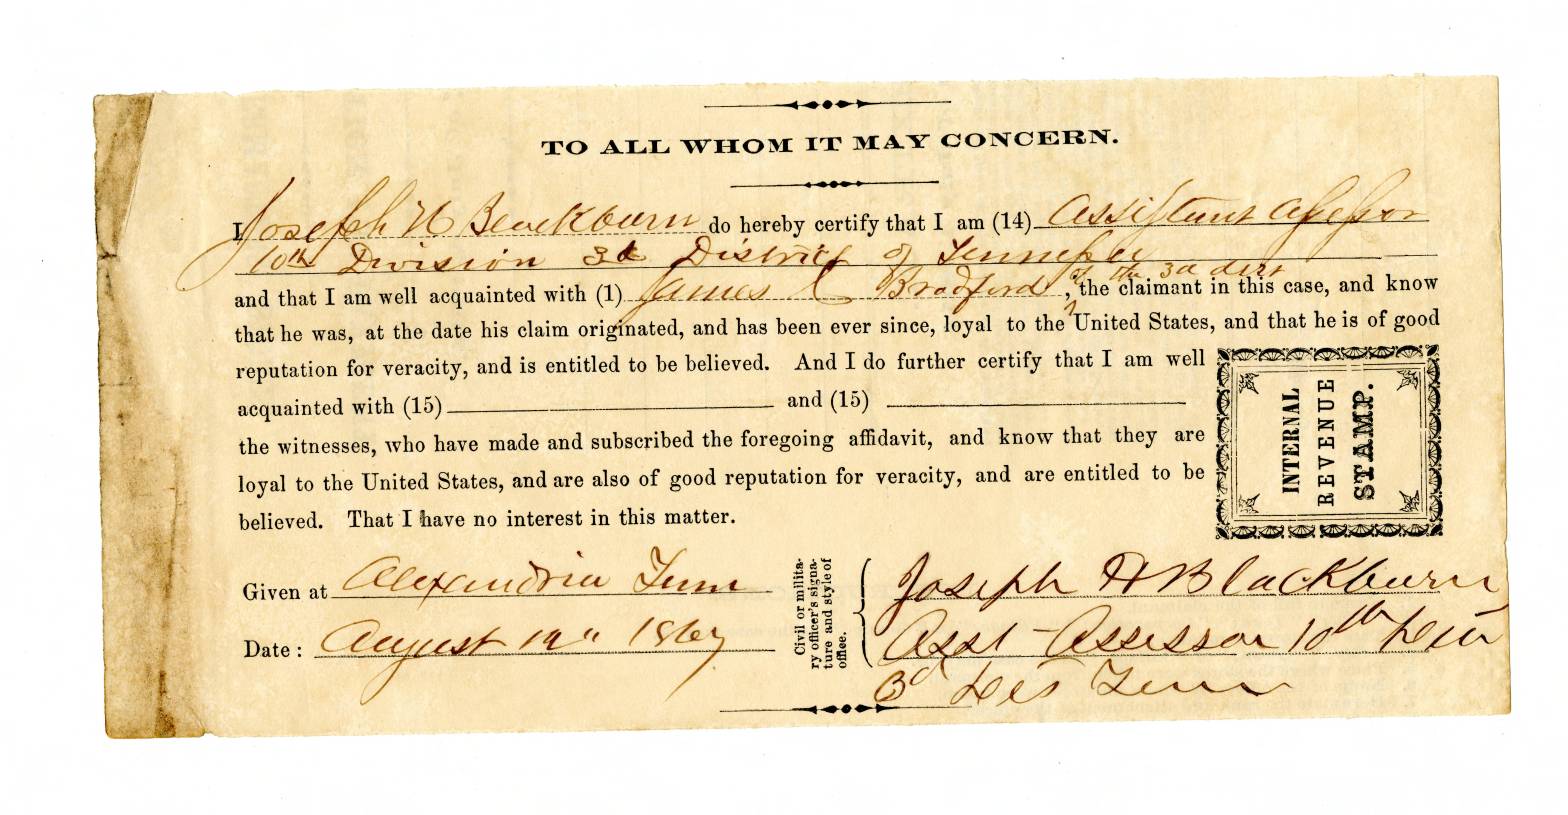 TO ALL WHOM IT MAY CONCERN.
I Joseph H Blackburn do hereby certify that I am (14) Assistant Assessor
10th Division 3d District of Tennessee
of the 3d dist
and that I am well acquainted with (1) James C Bradford, the claimant in this case, and know
that he was, at the date his claim originated, and has been ever since, loyal to the United States, and that he is of good
reputation for veracity, and is entitled to be believed. And I do further certify that I am well
acquainted with (15) and (15)
the witnesses, who have made and subscribed the foregoing affidavit, and know that they are
loyal to the United States, and are also of good reputation for veracity, and are entitled to be
believed. That I have no interest in this matter.
INTERNAL
REVENUE
STAMP.
Given at Alexandria Tenn
Date: August 1867
Civil or milita-
ry officer's signa-
ture and style of
office.
Joseph H Blackburn
Asst Assessor 10th Div
3d Des Tenn